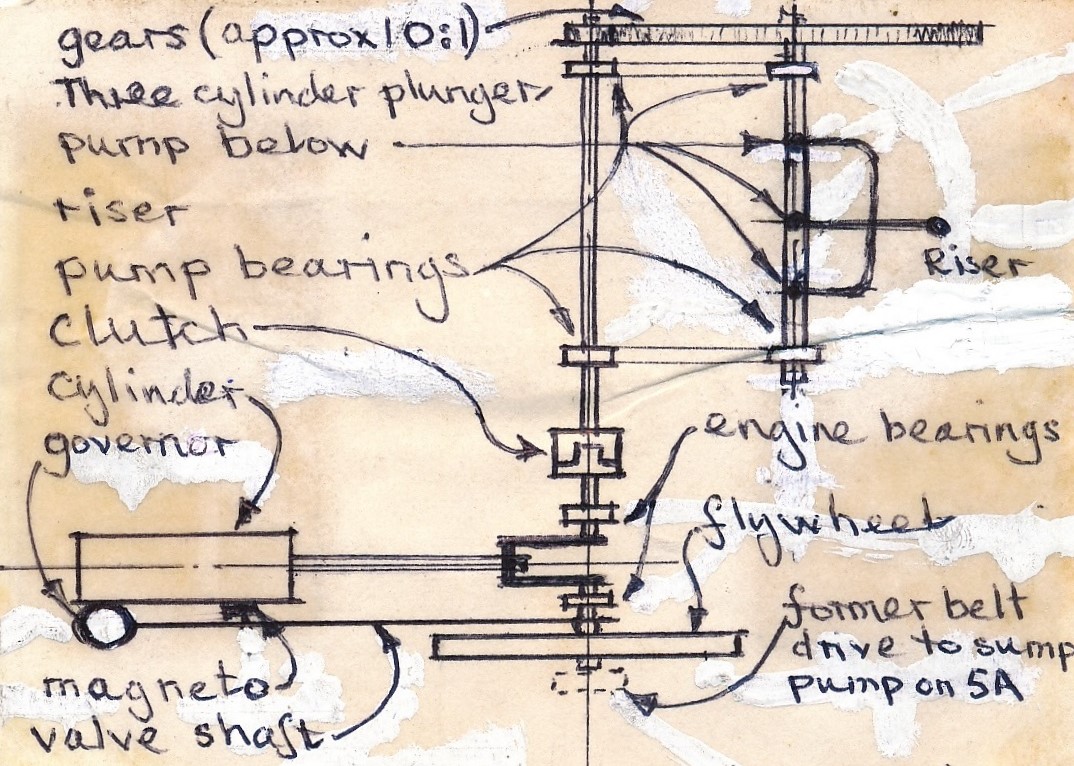 gears (approx 10:1)
Three cylinder plunger
pump below
riser
pump bearings
clutch
cylinder
governor
magneto
valve shaft
Riser
engine bearings
flywheel
former belt
drive to sump
pump on 5A